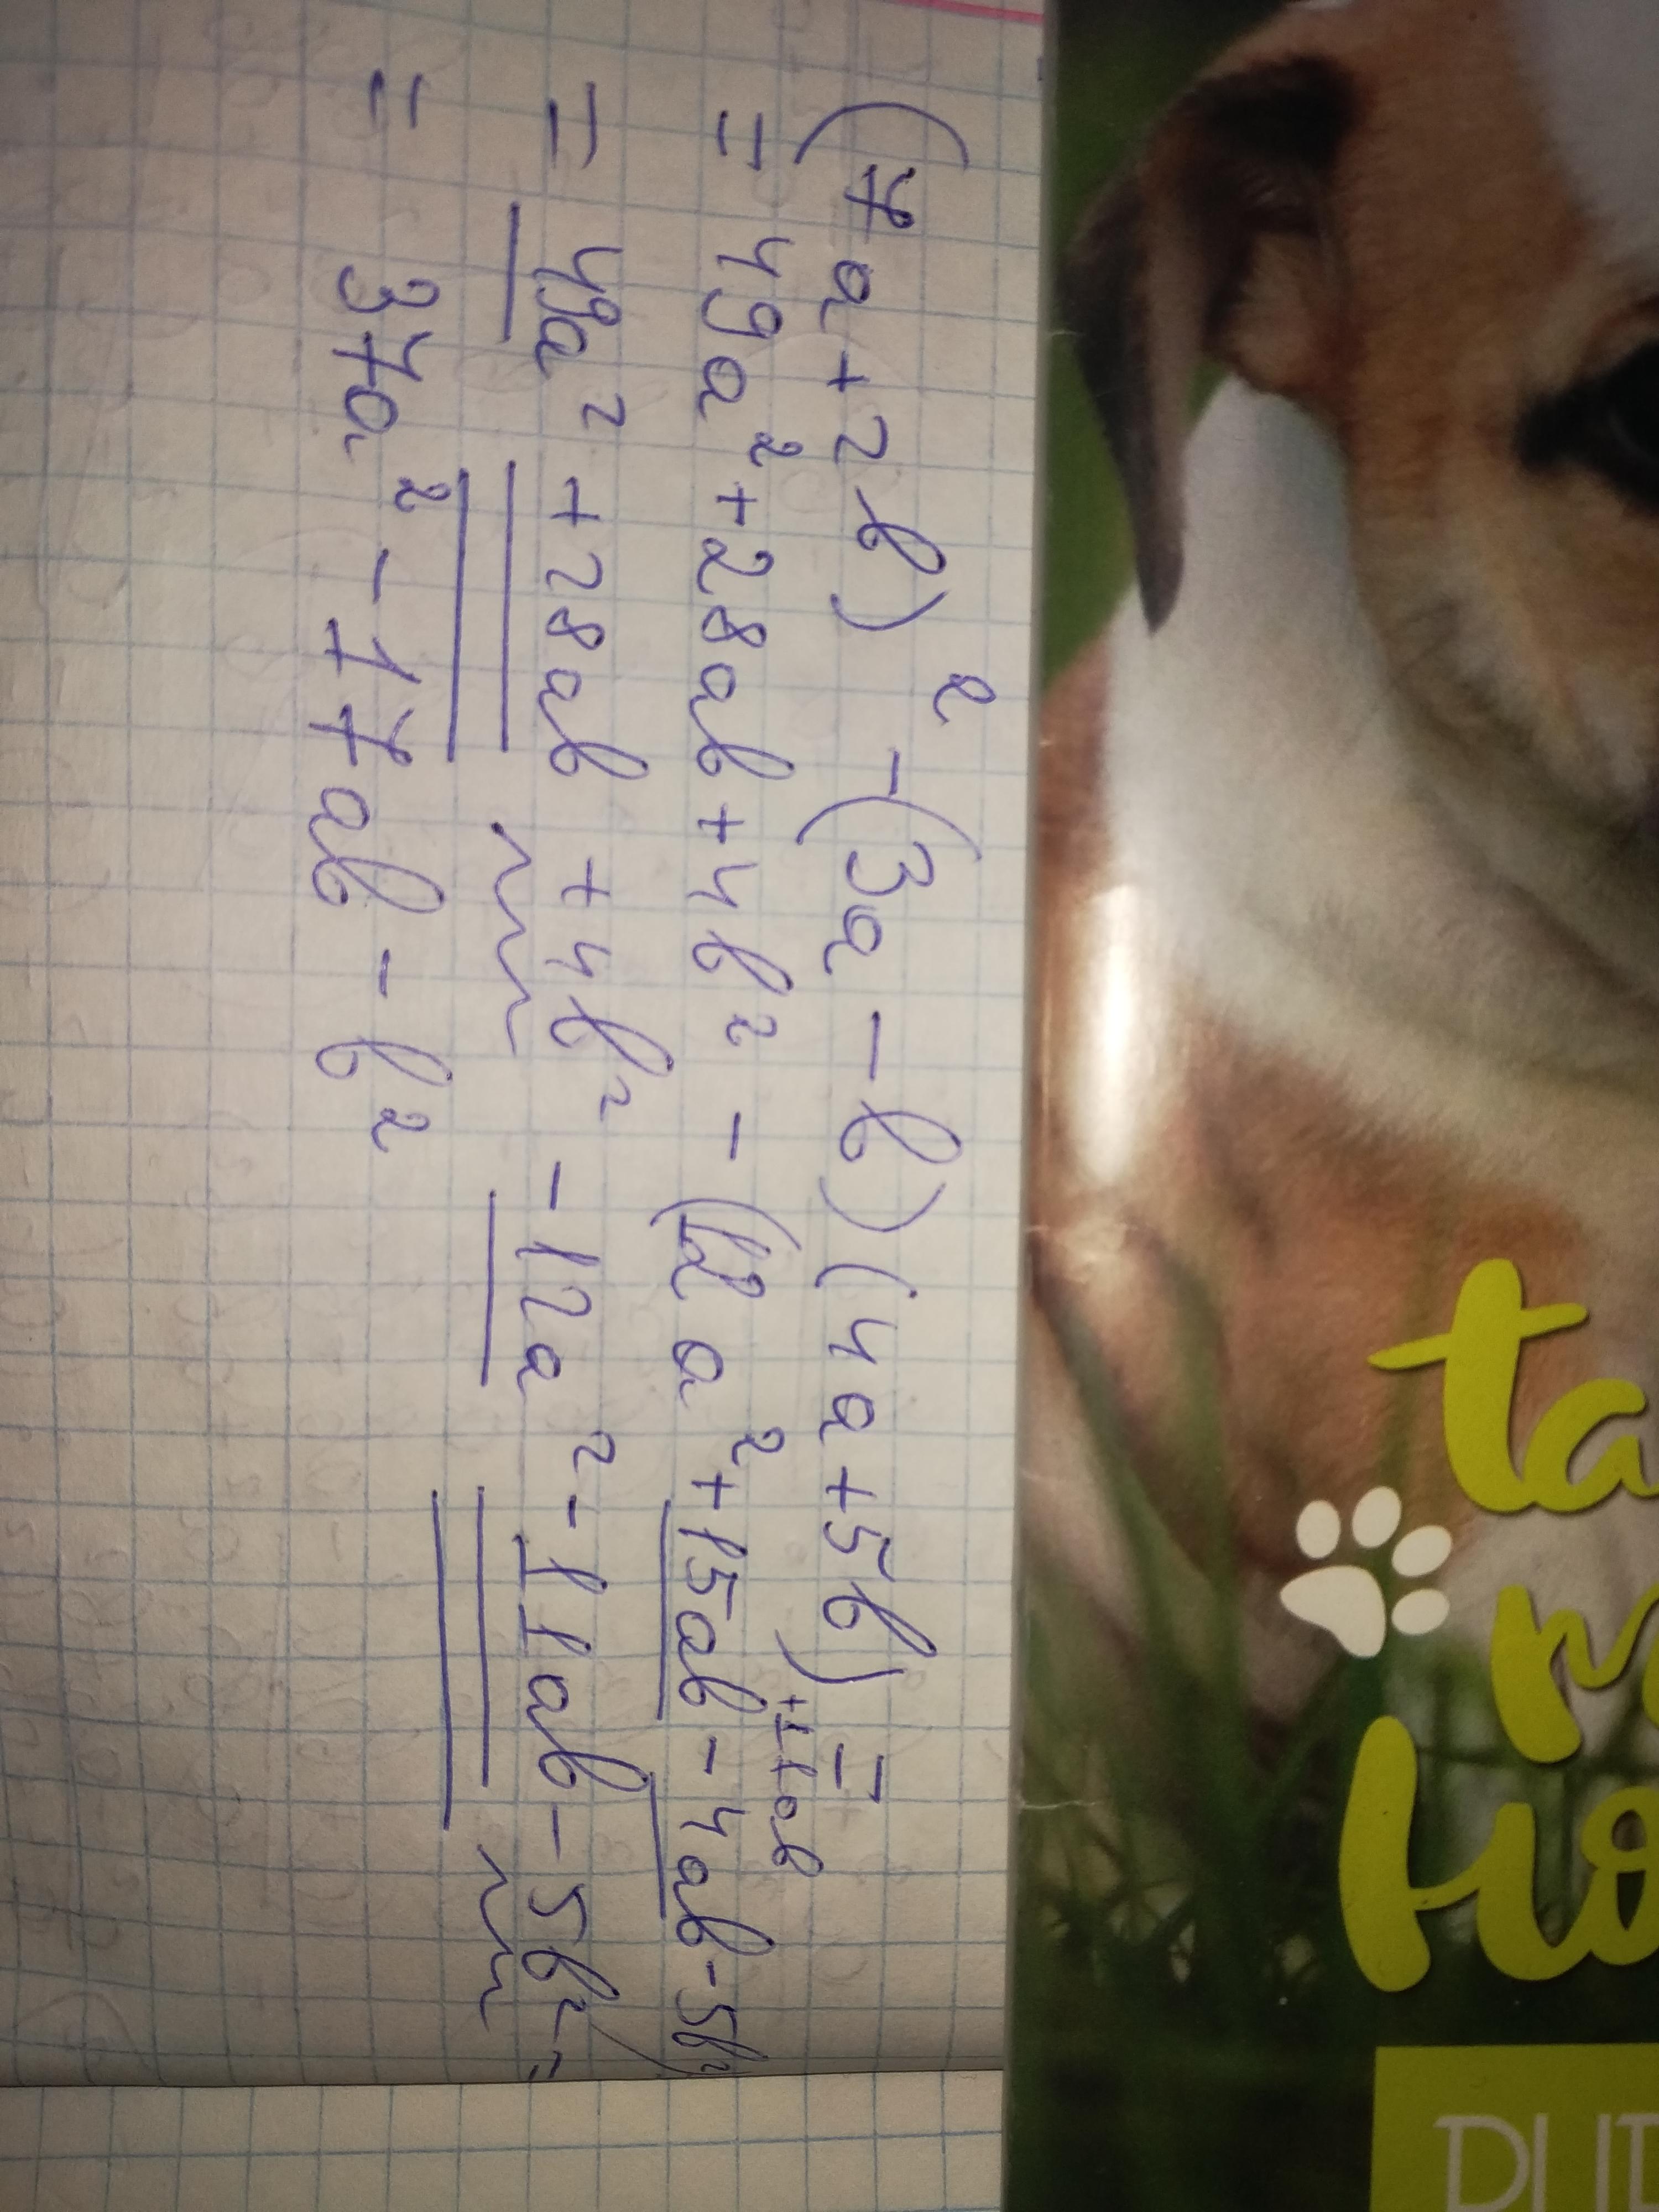 (7a+2b)² -(3a-b)(4a+5b)=
+11ab
=49a²+28ab+4b²-(12a²+15ab-4ab-5b²)
=49a²+28ab+4b²-12a²-11ab-5b²=
=37a²-17ab-b²